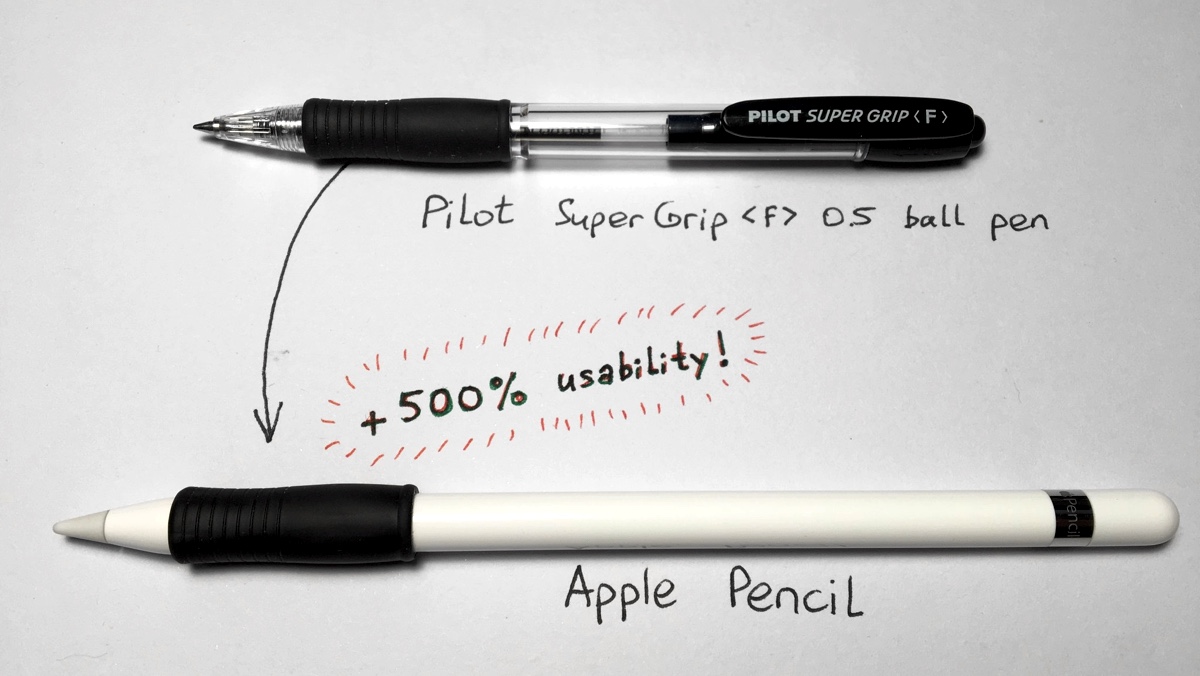 PILOT SUPER GRIP〈F〉
Pilot Super Grip <F> 0.5 ball pen
+500% usability!
Pencil
Apple Pencil